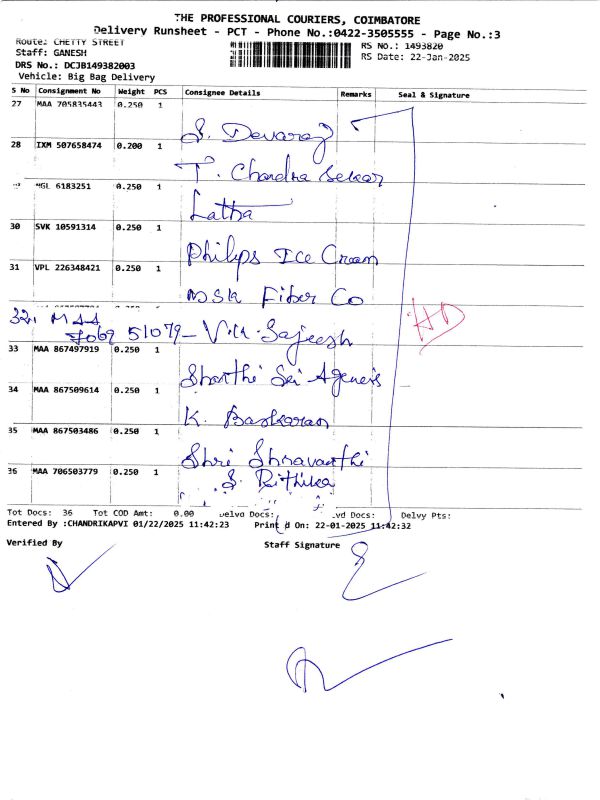 THE PROFESSIONAL COURIERS, COIMBATORE
Delivery Runsheet - PCT - Phone No.:0422-3505555 - Page No.:3
Route: CHETTY STREET
Staff: GANESH
DRS No.: DCJB149382003
Vehicle: Big Bag Delivery
RS No.: 1493820
RS Date: 22-Jan-2025
S No Consignment No Weight PCS Consignee Details Remarks Seal & Signature
27 MAA 705835443 0.250 1
S. Devaraj
28 IXM 507658474 0.200 1
T. Chandra Sekar
MGL 6183251 0.250 1
Latha
30 SVK 10591314 0.250 1
Philips Ice Cream
31 VPL 226348421 0.250 1
MSK Fiber Co
32. MAA
51079 - V.K. Sajeesh
HD
33 MAA 867497919 0.250 1
Sai Agencies
34 MAA 867509614 0.250 1
K. Baskaran
35 MAA 867503486 0.250 1
Shri Shravanthi
36 MAA 706503779 0.250 1
S. Rithika
Tot Docs: 36 Tot COD Amt: 0.00 Delvd Docs: vd Docs: Delvy Pts:
Entered By :CHANDRIKAPVI 01/22/2025 11:42:23 Print d On: 22-01-2025 11:42:32
Verified By Staff Signature